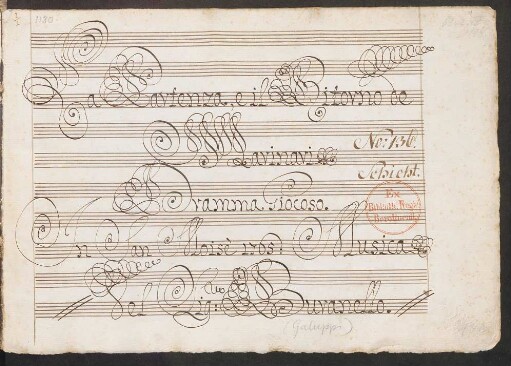 1180
La Partenza, e il Ritorno de
Marinari
No: 136.
Schicht.
Dramma Giocoso.
In San Moisè 1765: Musica
Del Sig: Buranello.
(Galuppi)
Ex
Biblioth. Regia
Berolinensi.